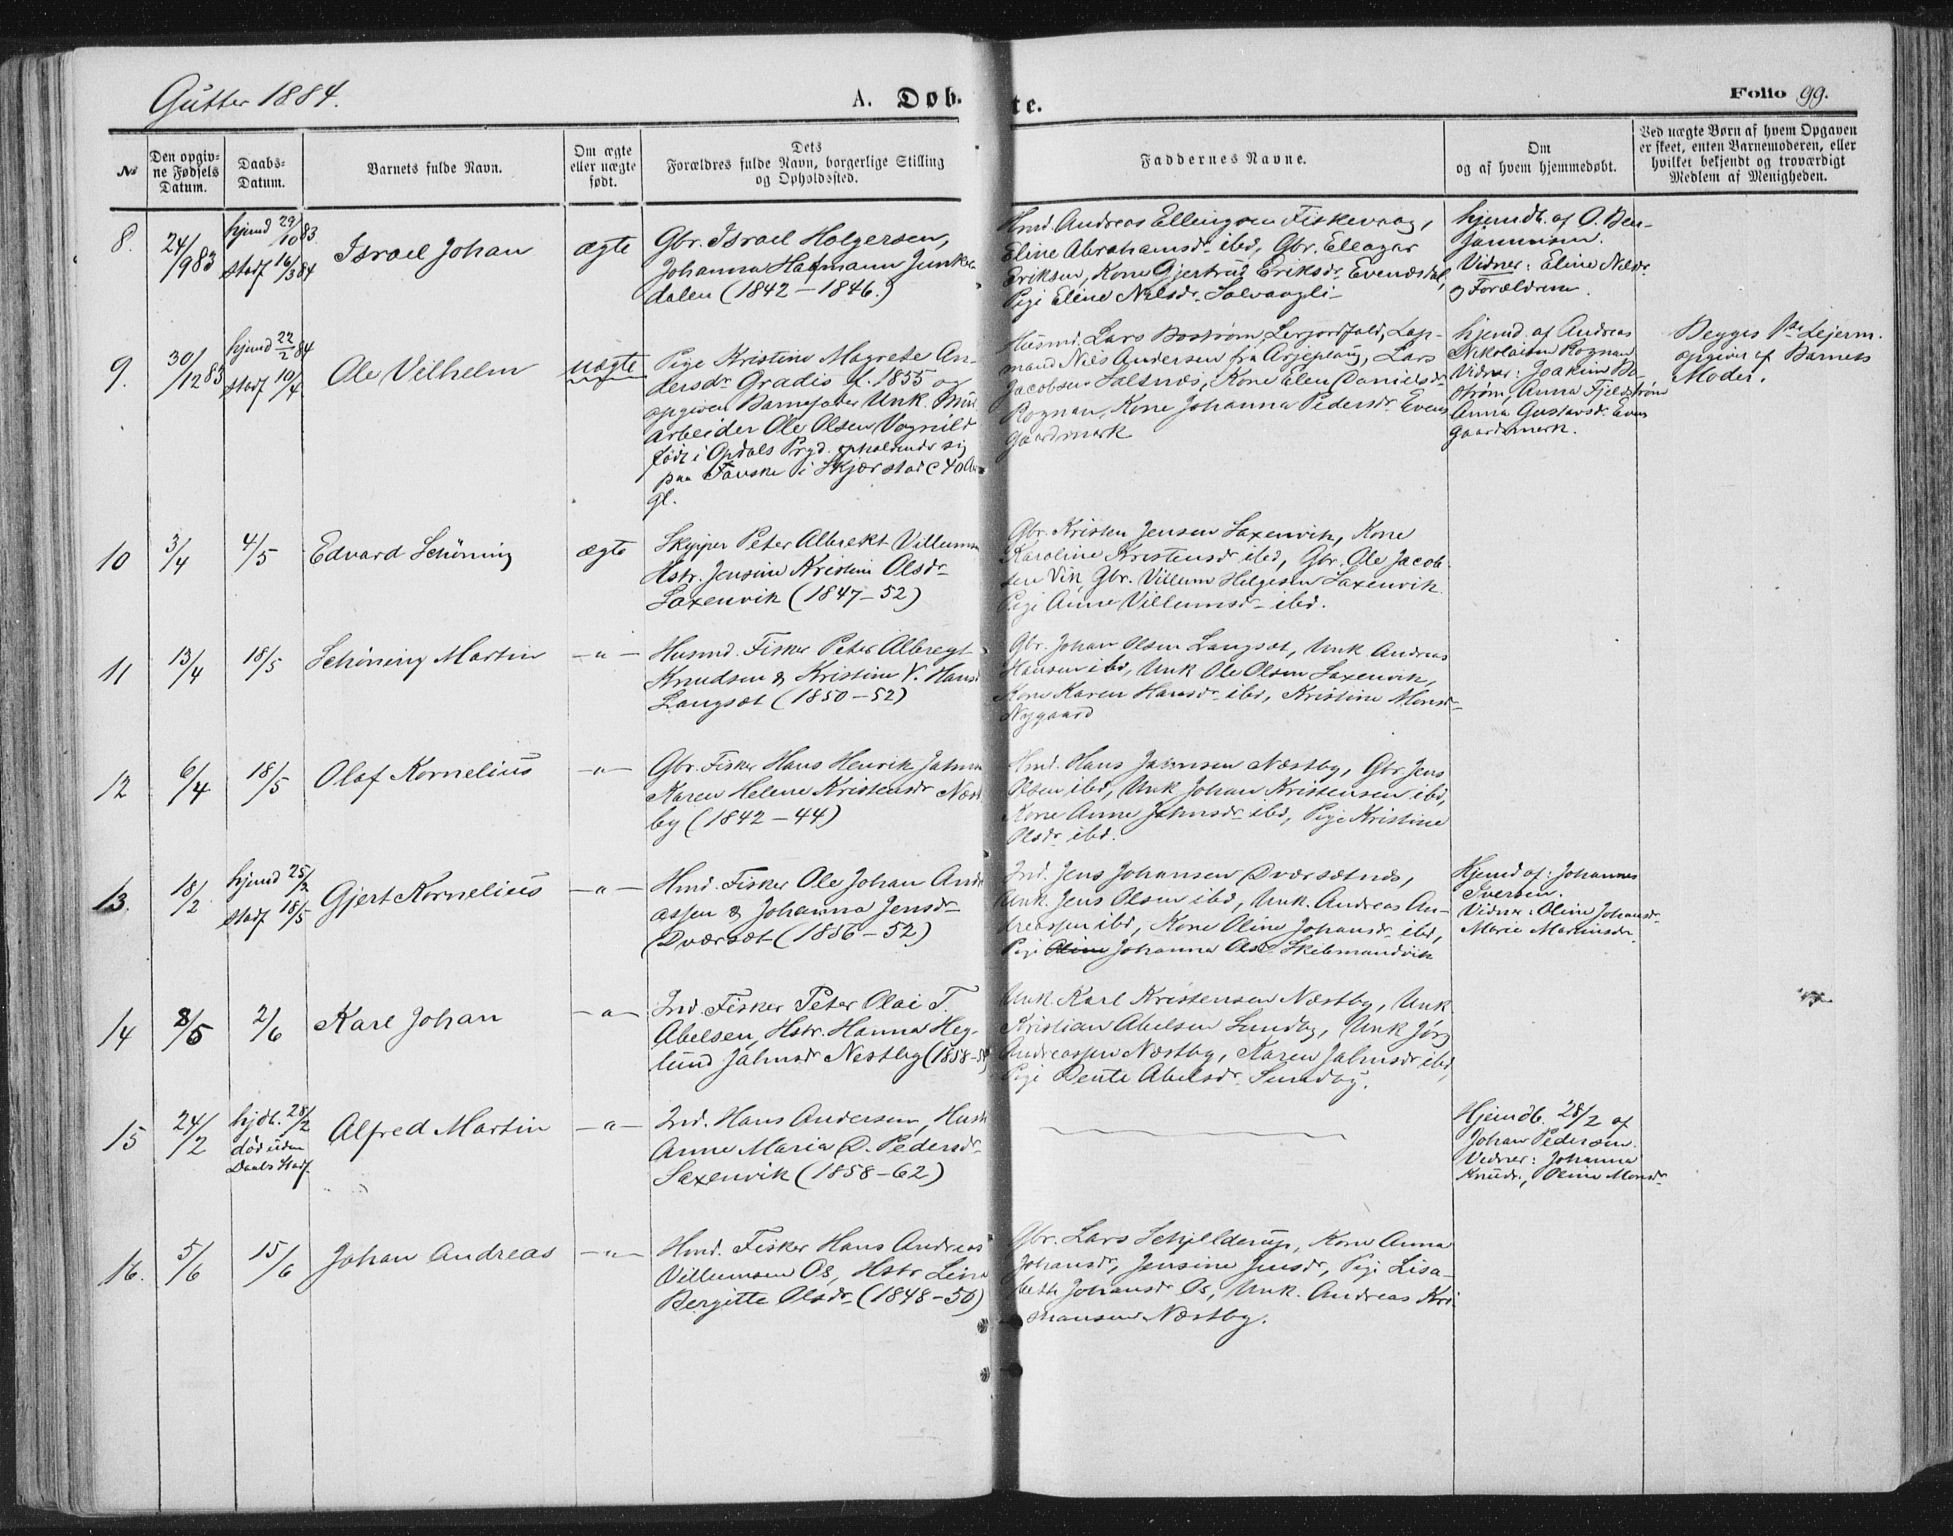 Gutter 1884.
A. Døb-
te.
Folio 99.
No
Den opgiv-
ne Fødsels
Datum.
Daabs-
Datum.
Barnets fulde Navn.
Om ægte
eller uægte
født.
Dets
Forældres fulde Navn, borgerlige Stilling
og Opholdssted.
Faddernes Navne.
Om
og af hvem hjemmedøbt.
Ved uægte Børn af hvem Opgaven
er skeet, enten Barnemoderen, eller
hvilket bekjendt og troværdigt
Medlem af Menigheden.
8.
24/9 83
hjemd 29/10 83
stadf 16/3 84
Israel Johan
ægte
Gbr. Israel Holgersen,
Johanna Hartmann Junker-
dalen (1842 – 1846.)
Hmd. Andreas Ellingsen Fiskevaag,
Eline Abrahamsdr. ibd, Gbr. Eleazar
Eriksen, Kone Gjertrud Eriksdr. Evensdal,
Pige Eline Nilsdr. Solvaagli
hjemdb. af O. Ben-
jaminsen.
Vidner: Eline Nilsdr.
og Forældrene.
9.
30/12 83
hjemd 22/2 84
stadf 10/4
Ole Vilhelm
uægte
Pige Kristine Magrete An-
dersdr. Gradis f. 1855 og
opgiven Barnefader Unk.
arbeider Ole Olsen Vognild
født i Opdals Prgd. opholdende sig
paa Fauske i Skjerstad c 40 Aar
gl.
Husmd. Lars Bostrøm Lerjordfald, Lap-
mand Nils Andersen fra Arjeplaug, Lars
Jacobsen Saltnæs, Kone Elen Danielsdr.
Rognan, Kone Johanna Pedersdr. Evens
gaardsmark
hjemd. af Andreas
Nikolaisen Rognan
Vidner: Joakim Bo-
strøm, Anna Fjeldstrøm
Anna Gustavsdr. Evens
gaardsmerk.
Begges 1ste Lejerm.
opgivet af Barnets
Moder.
10
3/4
4/5
Edvard Schöning
ægte
Skipper Peter Albrekt Villumsen
Hstr. Jensine Kristine Olsdr.
Saxenvik (1847–52)
Gbr. Kristen Jensen Saxenvik, Kone
Karoline Kristensdr. ibd, Gbr. Ole Jacob-
sen Vik, Gbr. Villum Helgesen Saxenvik
Pige Anne Villumsdr. ibd.
11
13/4
18/5
Schöning Martin
– " –
Husmd. Fisker Peter Albregt
Knudsen & Kristine V. Hansd
Langsæt (1850–52)
Gbr. Johan Olsen Langsæt, Unk. Andreas
Hansen ibd, Unk Ole Olsen Saxenvik,
Kone Karen Hansdr. ibd, Kristine Monsdr.
Nygaard
12
6/4
18/5
Olaf Kornelius
– " –
Gbr. Fisker Hans Henrik Jahnsen
Karen Helene Kristensdr. Næst-
by (1842–44)
Hmd. Hans Jahnsen Næstby, Gbr Jens
Olsen ibd, Unk Johan Kristensen ibd,
Kone Anne Jahnsdr. ibd, Pige Kristine
Olsdr. ibd.
13.
18/2
hjemd 25/2
stadf 18/5
Gjert Kornelius
– " –
Hmd. Fisker Ole Johan Andr
assen & Johanna Jensdr.
Dværsæt (1856–52)
Ind. Jens Johansen Dværsætnæs,
Unk. Jens Olsen ibd, Unk. Andreas An-
dreassen ibd, Kone Oline Johansdr. ibd,
Pige Johanna Olsdr. Skibmandvik
Hjemd af: Johannes
Iversen.
Vidner: Oline Johansdr.
Marie Martinsdr.
14
8/5
2/6
Karl Johan
– " –
Ind. Fisker Peter Olai T.
Abelsen, Hstr. Hanna Heg-
lund Jahnsdr. Nestby (1858–59)
Unk. Karl Kristensen Næstby, Unk
Kristian Abelsen Sundby, Unk Jørg
Andreassen Næstby, Karen Jahnsdr. ibd,
Pige Dente Abelsdr. Sundby.
15
24/2
hjdb. 28/2
død uden
Daabs Stadf.
Alfred Martin
– " –
Ind. Hans Andersen, Hustr
Anne Maria D. Pedersdr.
Saxenvik (1858–62)
Hjemdb. 28/2 af
Johan Pedersen.
Vidner: Johanna
Knudr., Oline Monsdr.
16.
5/6
15/6
Johan Andreas
– " –
Hmd. Fisker Hans Andreas
Villumsen Os, Hstr Lina
Bergitte Olsdr. (1848–50)
Gbr. Lars Schjelderup, Kone Anna
Johansdr, Jensine Jensdr, Pige Lisa-
beth Johansdr Os, Unk. Andreas Kri-
stiansen Næstby.